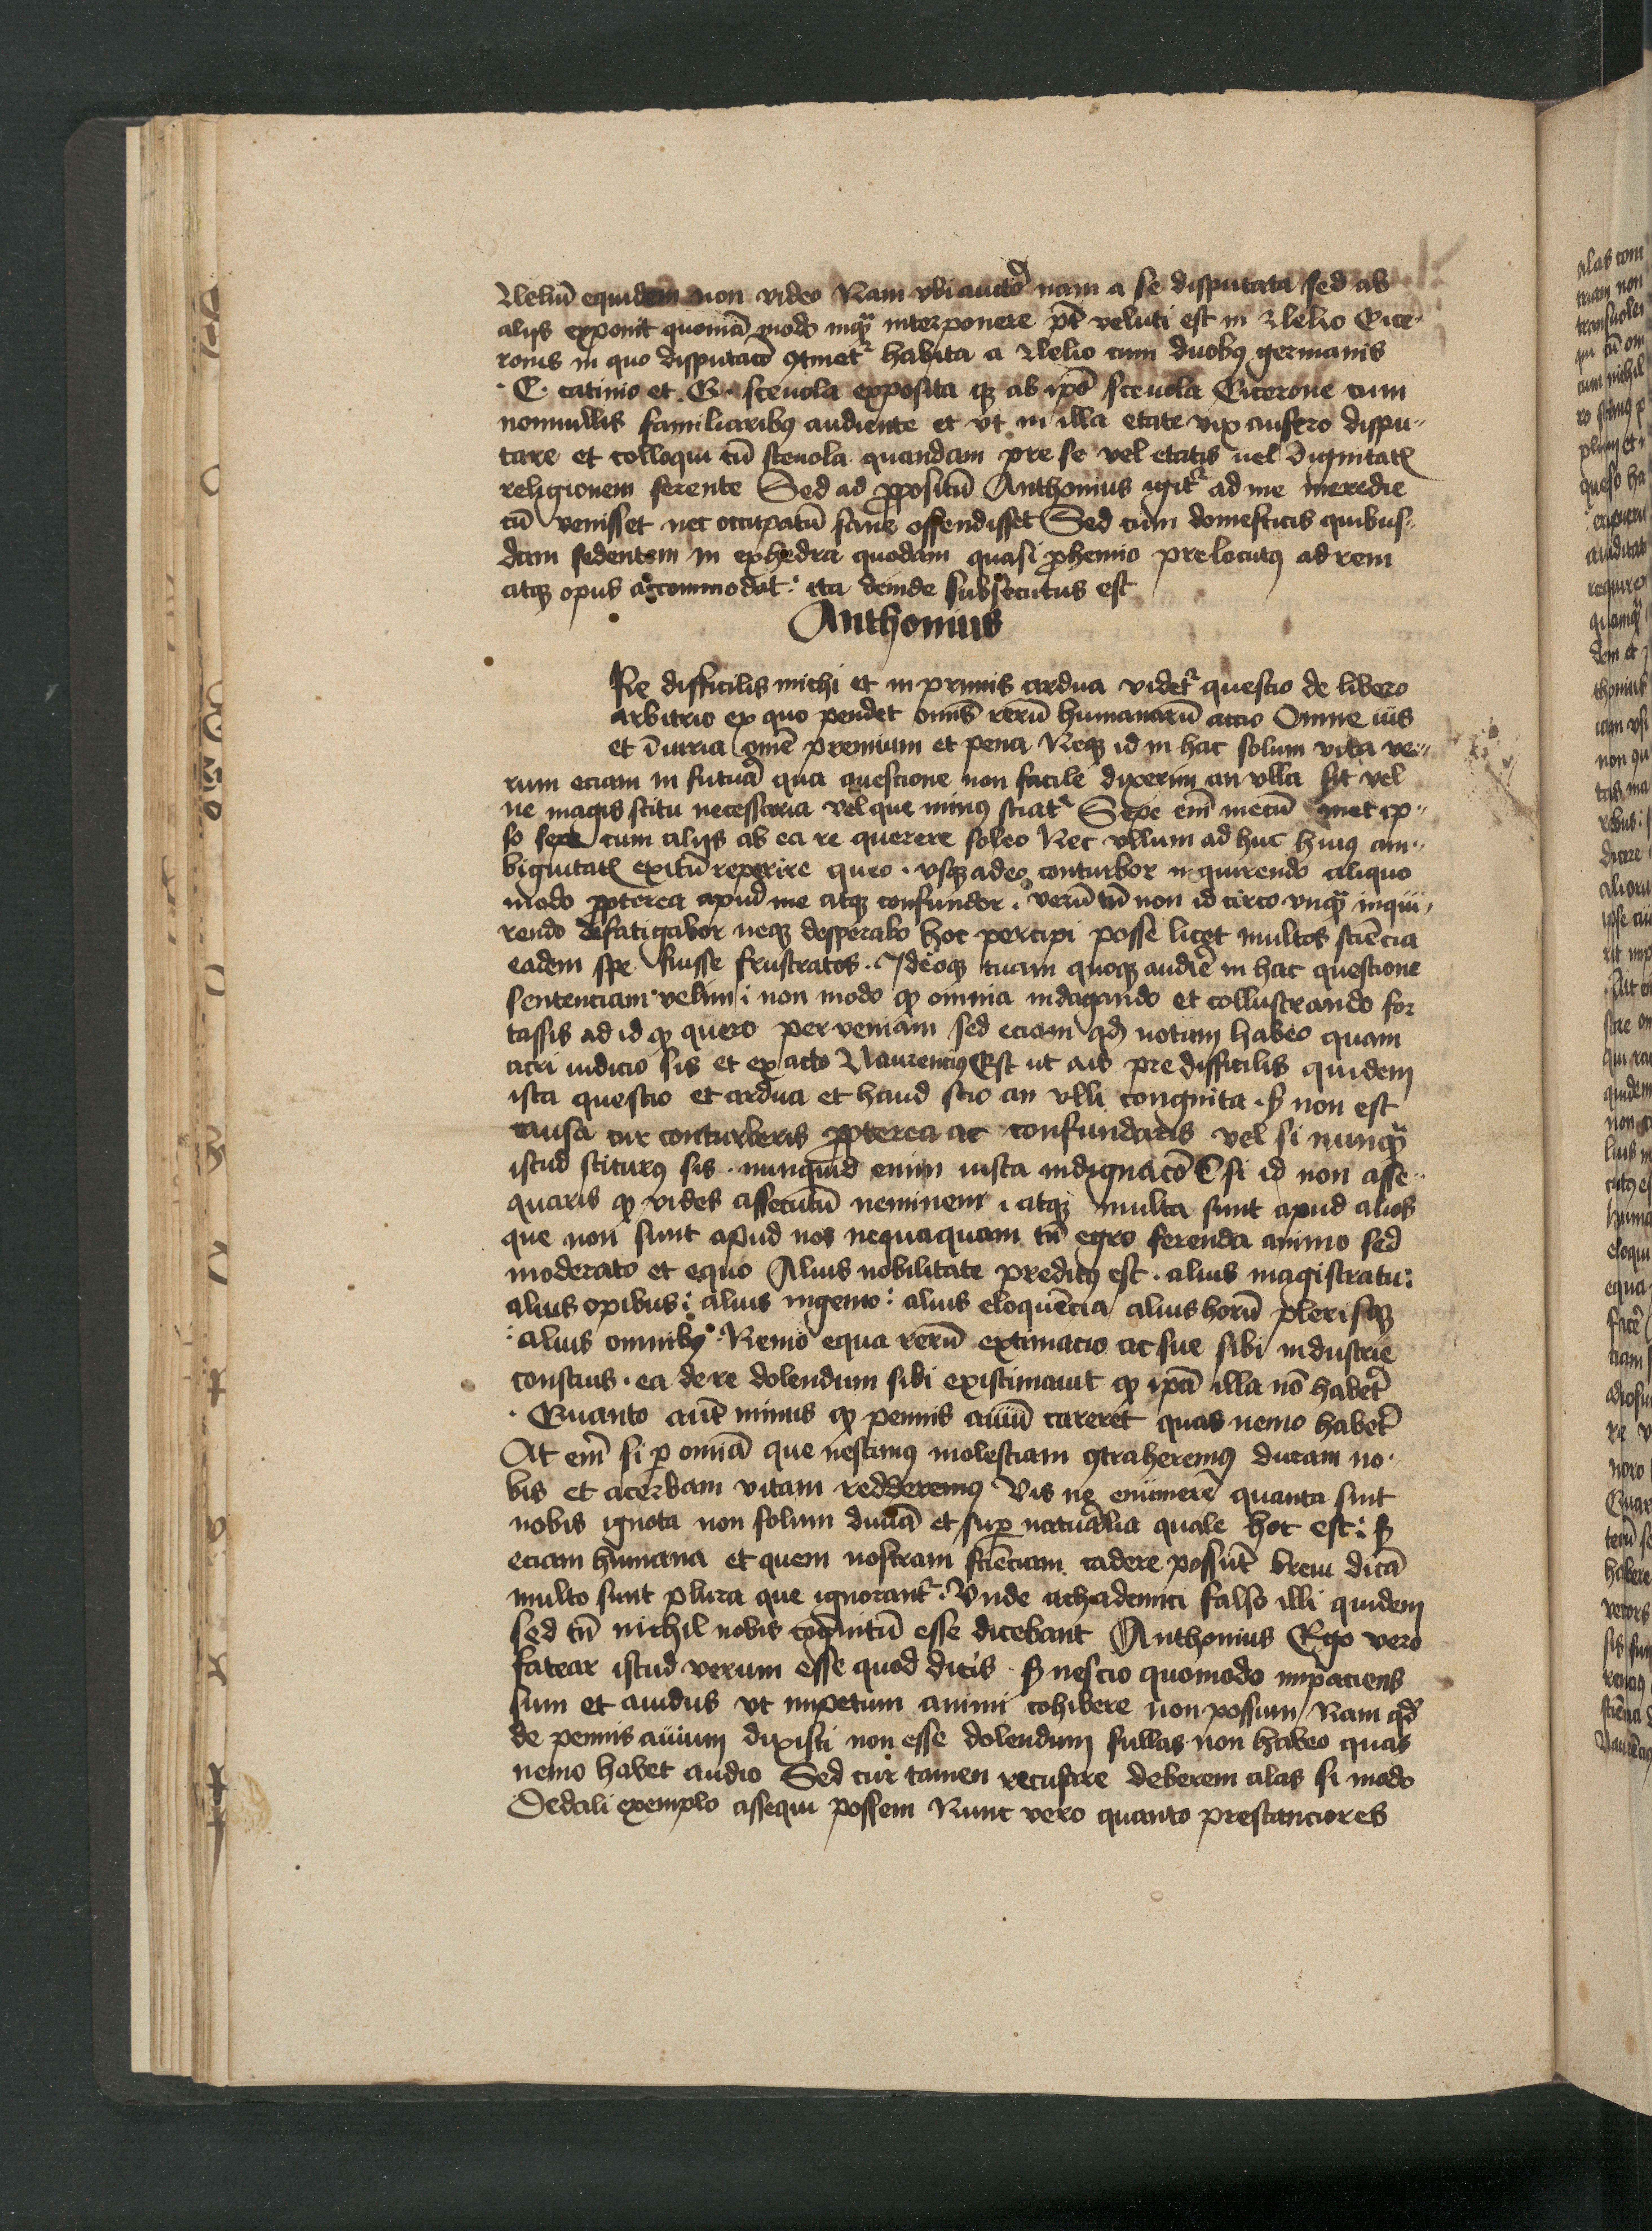 Leliū equidem non video Nam vbi auctor nam a se disputata sed ab
alijs exponit quoniā modo inqͣ interponere pt̄ veluti est in Lelio Cice-
ronis in quo disputaco ꝯtinetr̄ habita a Lelio cum duobꝰ germanis
C. catinio et Q. sceuola exposita qꝫ ab ipo̅ sceuola Cicerone cum
nonnullis familiaribꝰ audiente et vt in illa etate vix ausero dispu-
tare et colloqui cū sceuola quandam pre se vel etatis uel dignitatꝭ
religionem ferente Sed ad ꝓpositū Anthonius igitr̄ ad me meredie
cū venisset nec occupatū sane offendisset Sed cum domesticis quibus-
dam sedentem in exhedra quodam quasi ꝓhemio prelocutꝰ ad rem
atqꝫ opus accommodat: ita deinde subsecutus est
Anthonius
Re difficilis michi et in primis ardua videtr̄ questio de libero
arbitrio ex quo pendet omīs rerū humanarū actio Omne ius
et iīuria omē premium et pena Neqꝫ id in hac solum vita ve-
rum eciam in futurā qua questione non facile dixerim an vlla sit vel
ne magis scitu necessaria vel que minꝰ sciatr̄ Sepe em̄ mecū met ip-
so sepe cum alijs ab ea re querere soleo Nec vllum ad huc huiꝰ am-
biguitatꝭ exitū reperire queo . vsqꝫ adeo conturbor in quirendo aliquo
modo ꝓpterea apud me atqꝫ confundor . verū tn̄ non id circo vnqͣ inqui-
rendo defatigabor neqꝫ desperabo hoc percipi posse licet multos sciēcia
eadem spe fuisse frustratos . Ideoqꝫ tuam quoqꝫ audire in hac questione
sentenciam velim: non modo qꝫ omnia indagando et collustrando for
tassis ad id qꝫ quero perveniam sed eciam qd̄ notum habeo quam
acri iudicio sis et exacto Laurenciꝰ Est ut ais predifficilis quidem
ista questio et ardua et haud scio an vlli congnita . sꝫ non est
causa cur conturberis ꝓpterea ac confundaris vel si nunqͣ
istud sciturꝰ sis . nunquid enim iusta indignaco ē si id non asse-
quaris qꝫ vides assecutū neminem . atqꝫ multa sunt apud alios
que non sunt apud nos nequaquam tn̄ egro ferenda animo sed
moderato et equo Alius nobilitate preditꝰ est . alius magistratu:
alius opibus: alius ingenio: alius eloquēcia alius horū plerisqꝫ
: alius omnibꝰ . Nemo equa rerū extimacio ac sue sibi industrie
conscius . ea de re dolendum sibi existimauit qꝫ ipā illa nō haberet
. Quanto aut̄ minus qꝫ pennis auiū careret quas nemo haberet
At em̄ si ꝑ omīa que nescimꝰ molestiam ꝯtraheremꝰ duram no-
bis et acerbam vitam redderemꝰ Vis ne enumere quanta sint
nobis ignota non solum diuīa et suꝑ naturalia quale hoc est: sꝫ
eciam humana et quem nostram sciēciam cadere possūt breui dicā
multo sunt plura que ignorantr̄ . Vnde achademici falso illi quidem
sed tn̄ nichil nobis cognitū esse dicebant Anthonius Ego vero
fatear istud verum esse quod dicis . sꝫ nescio quomodo impaciens
sum et auidus vt impetum animi cohibere non possum Nam qd̄
de pennis auium dixisti non esse dolendum si illas non habeo quas
nemo habet audio Sed cur tamen recusare deberem alas si modo
Dedali exemplo assequi possem Nunc vero quanto prestanciores